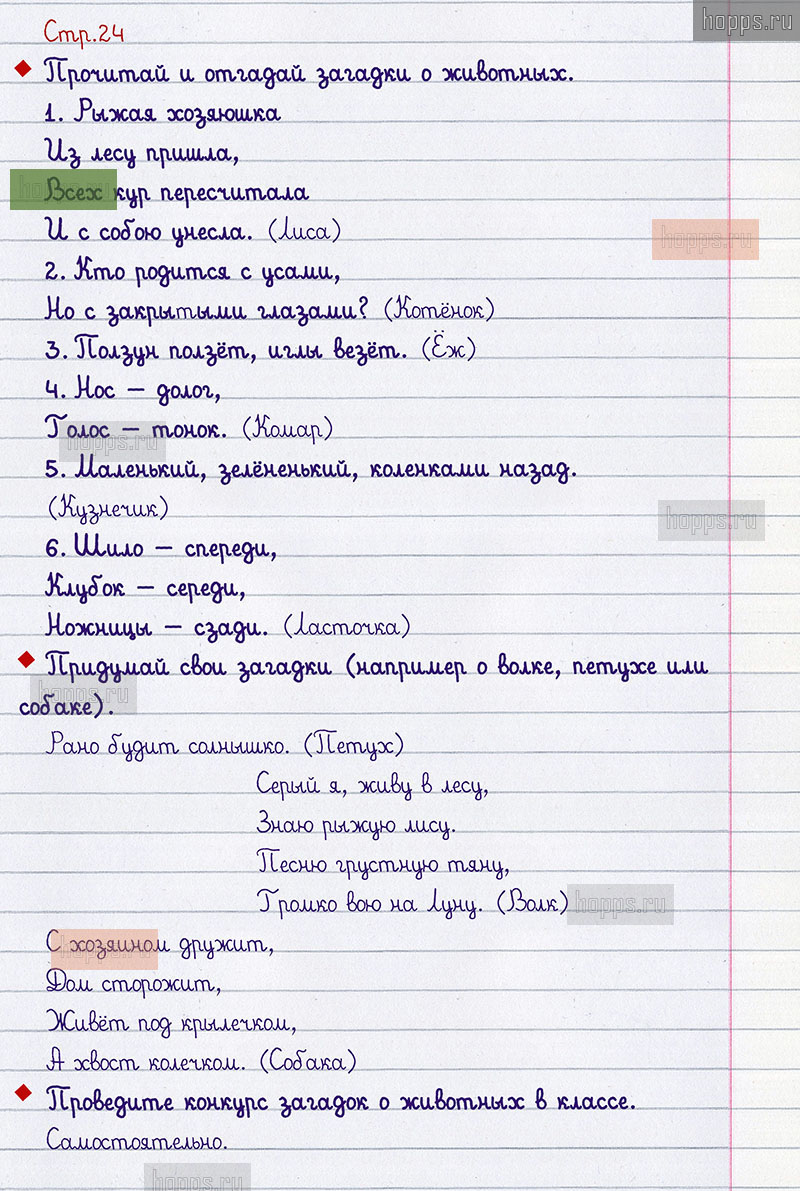 hopps.ru
Стр.24
Прочитай и отгадай загадки о животных.
1. Рыжая хозяюшка
Из лесу пришла,
Всех кур пересчитала
И с собою унесла. (Лиса)
hopps.ru
2. Кто родится с усами,
Но с закрытыми глазами? (Котёнок)
3. Ползун ползёт, иглы везёт. (Ёж)
4. Нос — долог,
Голос — тонок. (Комар)
hopps.ru
5. Маленький, зелёненький, коленками назад.
(Кузнечик)
hopps.ru
6. Шило — спереди,
Клубок — середи,
Ножницы — сзади. (Ласточка)
Придумай свои загадки (например о волке, петухе или
hopps.ru
собаке).
Рано будит солнышко. (Петух)
Серый я, живу в лесу,
Знаю рыжую лису.
Песню грустную тяну,
Громко вою на Луну. (Волк)
hopps.ru
С хозяином дружит,
hopps.ru
Дом сторожит,
Живёт под крылечком,
А хвост колечком. (Собака)
Проведите конкурс загадок о животных в классе.
Самостоятельно.
hopps.ru